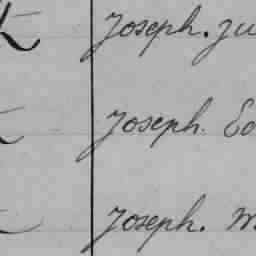 Joseph. Ju
Joseph. Ed
Joseph. M